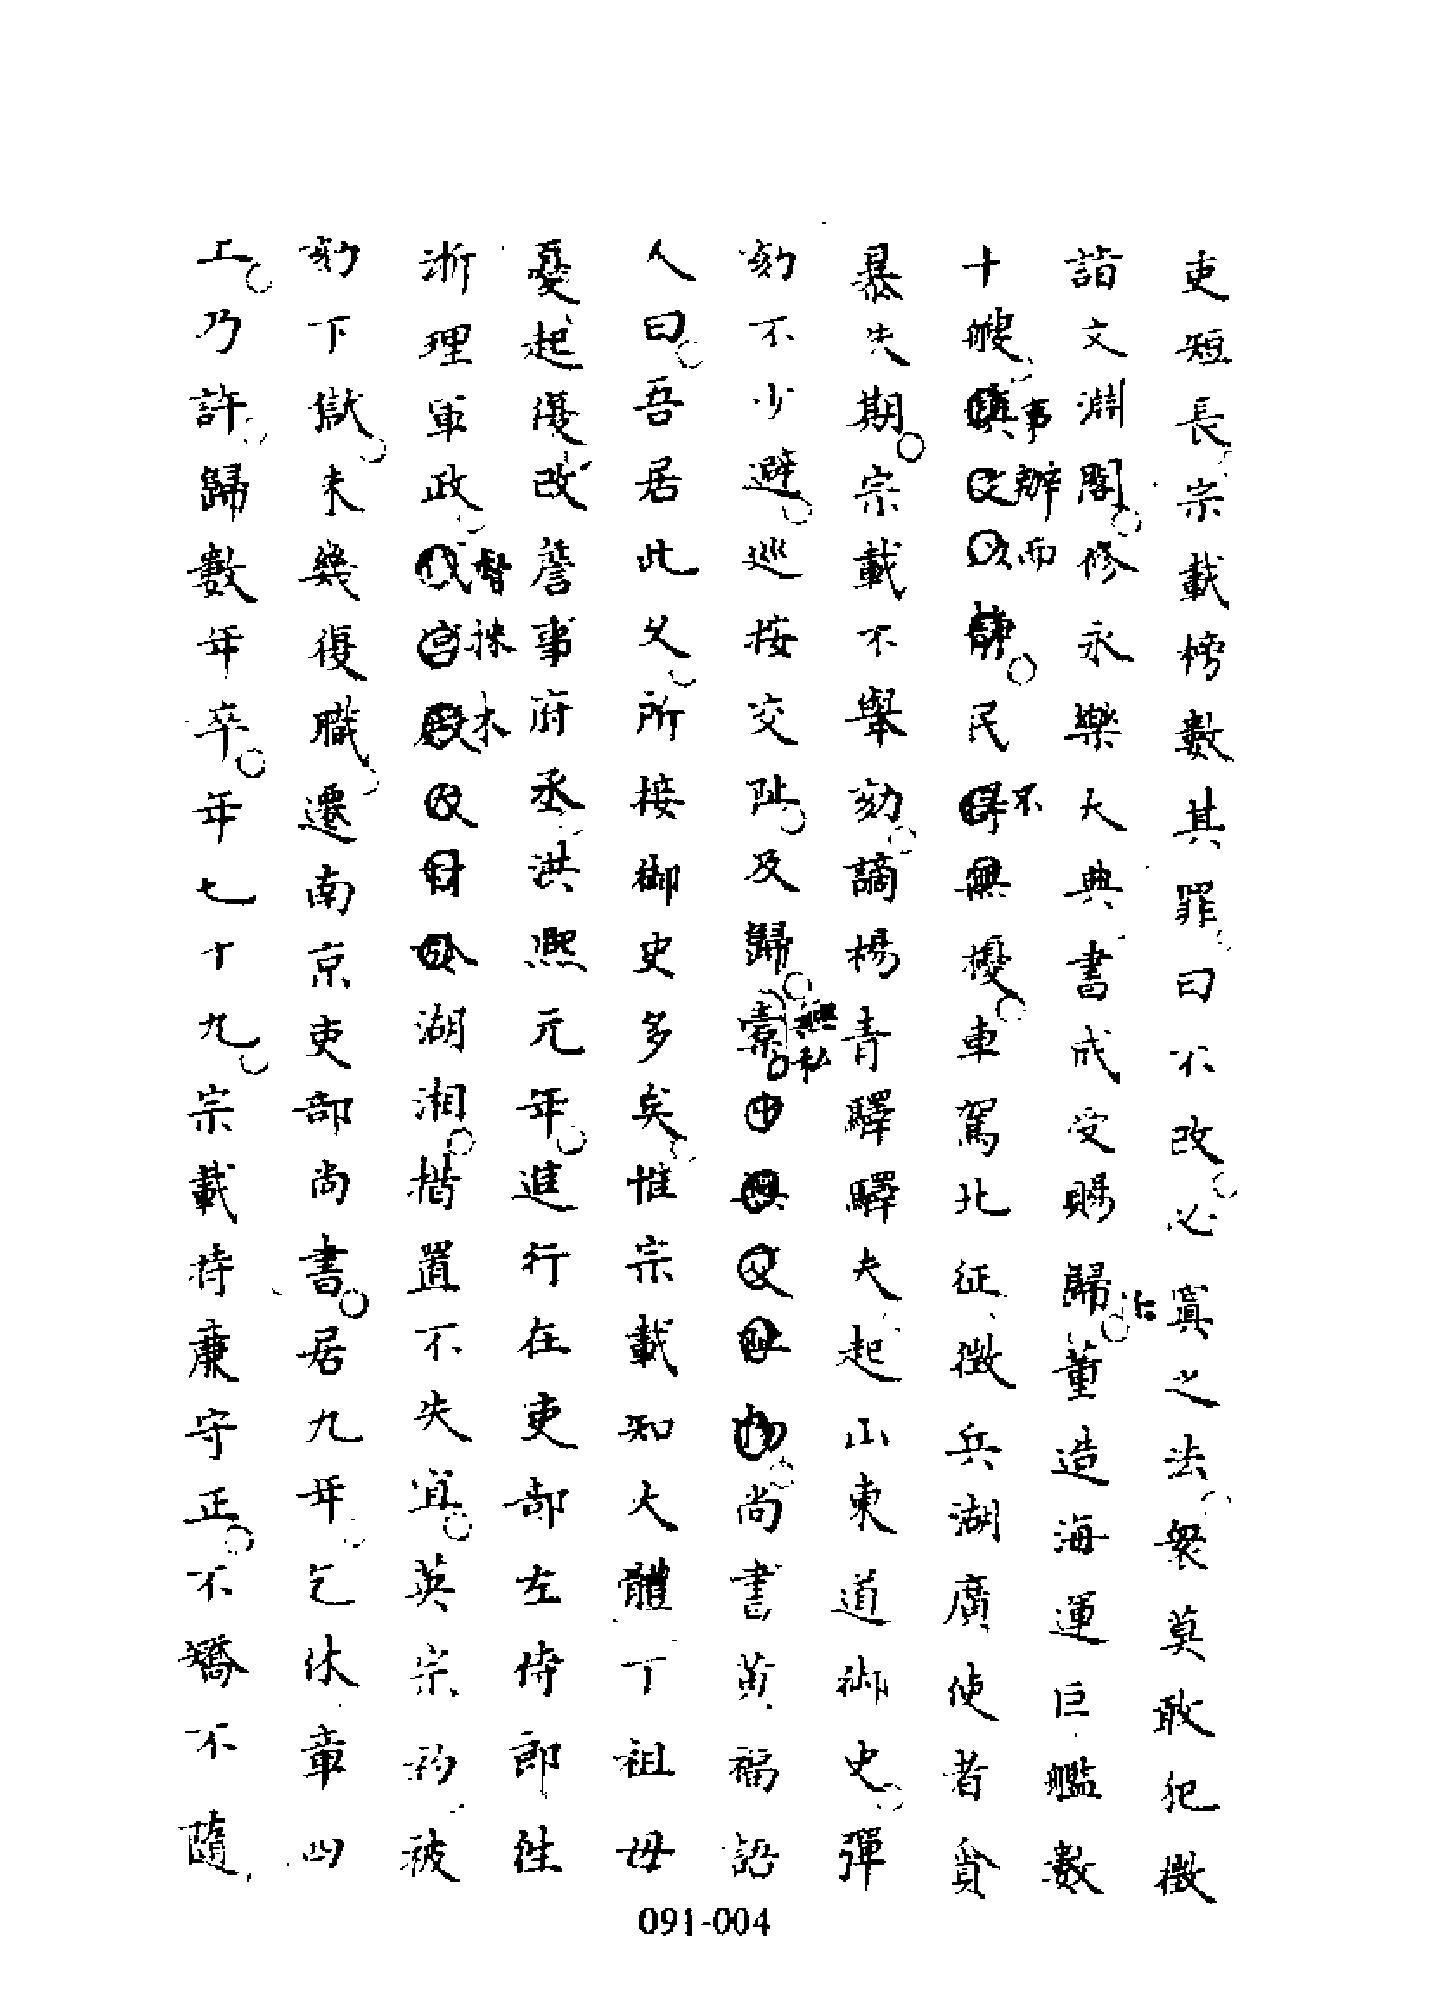 吏短長宗載榜數其罪曰不改必寘之法衆莫敢犯徵
詣文淵閣修永樂大典書成受賜歸治董造海運巨艦數
十艘事辦而民不擾車駕北征徵兵湖廣使者貪
暴失期宗載不舉劾謫楊青驛驛夫起山東道御史彈
劾不少避巡按交阯及歸橐無私尚書黄福語
人曰吾居此久所接御史多矣惟宗載知大體丁祖母
憂起復改詹事府丞洪熙元年進行在吏部左侍郎往
浙理軍政督採木湖湘措置不失宜英宗初被
劾下獄未幾復職遷南京吏部尚書居九年乞休章四
上乃許歸數年卒年七十九宗載持廉守正不矯不隨
091-004